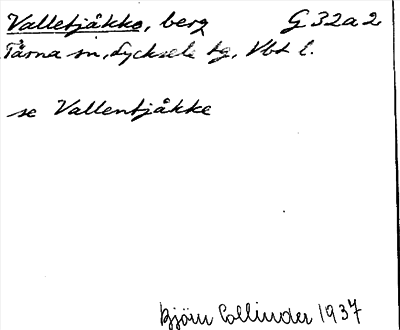 Valletjåkko, berg G 32 a 2
Tärna sn, Lycksele tg, Vbt l.
se Vallentjåkke
Björn Collinder 1937